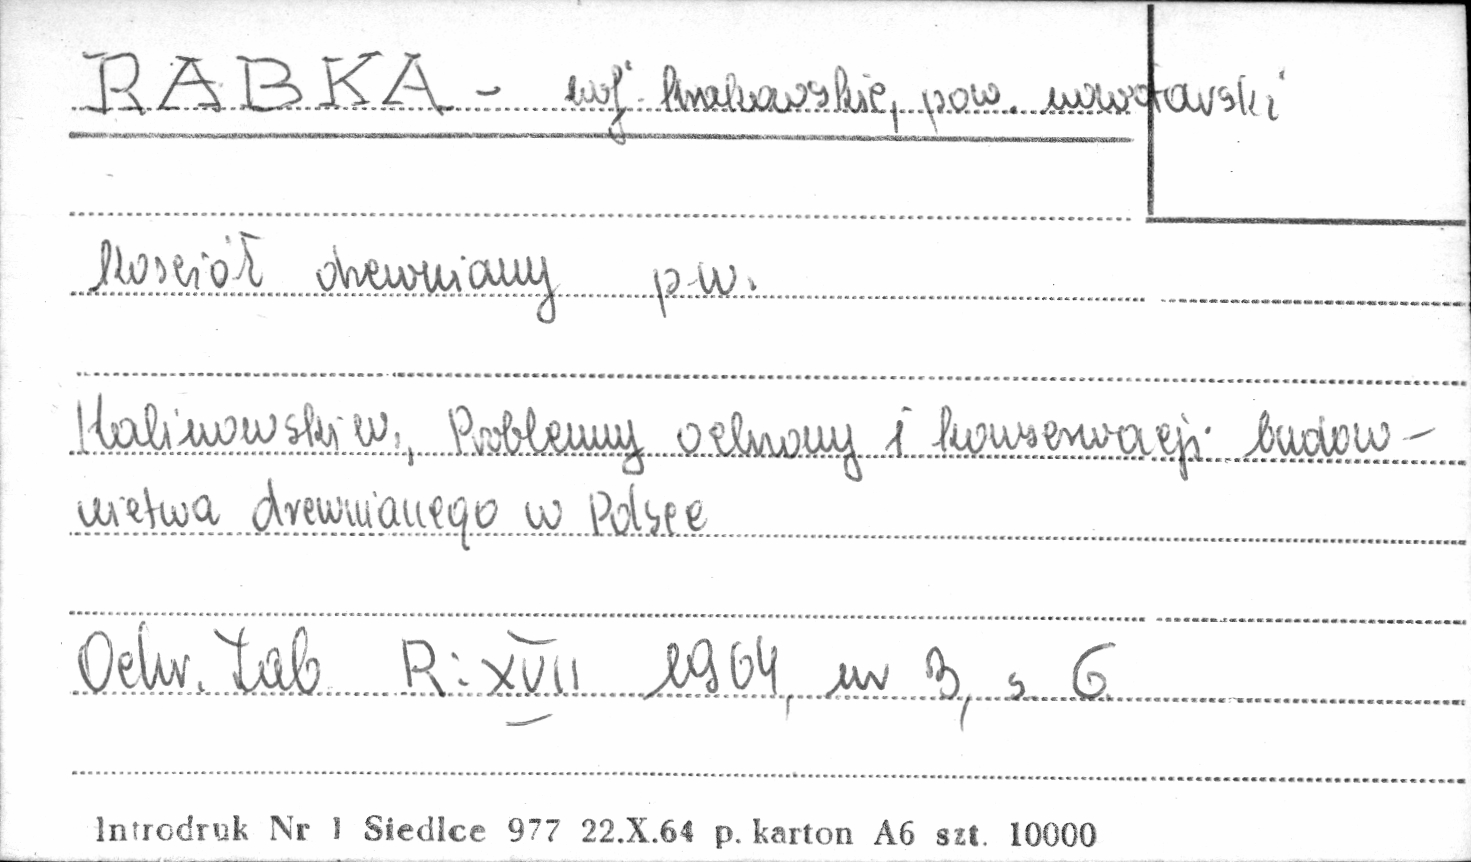 RABKA - woj. krakowskie, pow. nowotarski
Kościół drewniany p.w.
Kalinowski W., Problemy ochrony i konserwacji budow-
nictwa drewnianego w Polsce
Ochr. Zab R: XVII 1964, nr 3, s 6
Introdruk Nr 1 Siedlce 977 22.X.64 p. karton A6 szt. 10000